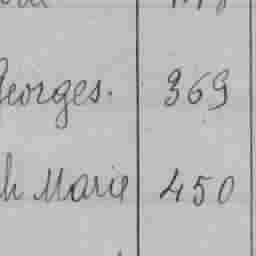 Georges. 369
h Marie 450